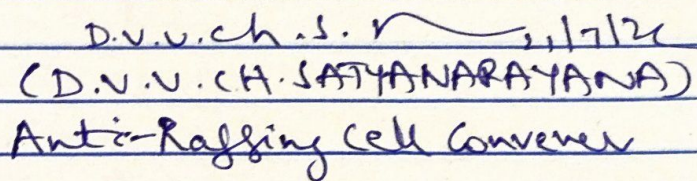 D.V.V.Ch.S.
(D.V.V.CH.SATYANARAYANA)
Anti-Ragging Cell Convener